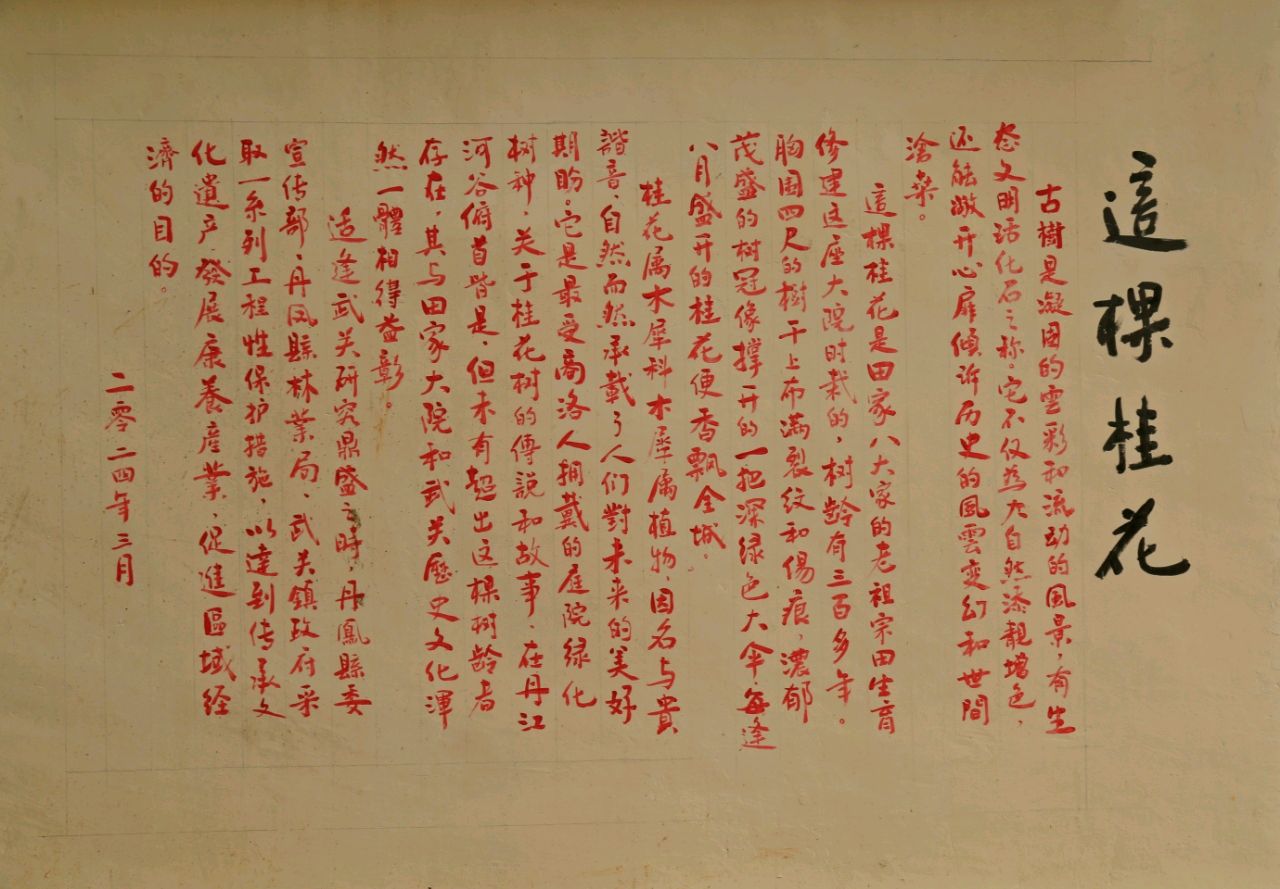 這棵桂花
古樹是凝固的雲彩和流动的風景，有生
态文明活化石之称。它不仅為大自然添靓增色，
还能敞开心扉倾诉历史的風雲变幻和世間
滄桑。
這棵桂花是田家八大家的老祖宗田生育
修建这座大院时栽的，树龄有三百多年。
胸围四尺的樹干上布满裂纹和傷痕，濃郁
茂盛的树冠像撑开的一把深绿色大伞，每逢
八月盛开的桂花便香飄全城。
桂花属木犀科木犀属植物，因名与貴
諧音，自然而然承載了人们對未来的美好
期盼。它是最受商洛人拥戴的庭院绿化
树种，关于桂花树的傳說和故事，在丹江
河谷俯首皆是，但未有超出这棵树龄者
存在，其与田家大院和武关歷史文化渾
然一體相得益彰。
适逢武关研究鼎盛之時，丹鳳縣委
宣传部、丹凤縣林業局、武关鎮政府采
取一系列工程性保护措施，以達到传承文
化遺产，發展康養産業，促進區域经
濟的目的。
二零二四年三月